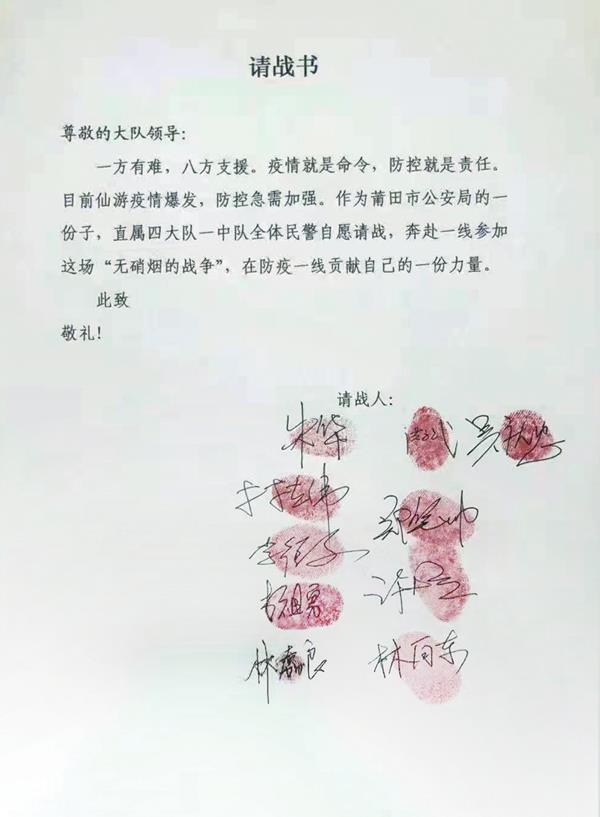 请战书
尊敬的大队领导：
一方有难，八方支援。疫情就是命令，防控就是责任。
目前仙游疫情爆发，防控急需加强。作为莆田市公安局的一
份子，直属四大队一中队全体民警自愿请战，奔赴一线参加
这场“无硝烟的战争”，在防疫一线贡献自己的一份力量。
此致
敬礼！
请战人：
朱华
林向东